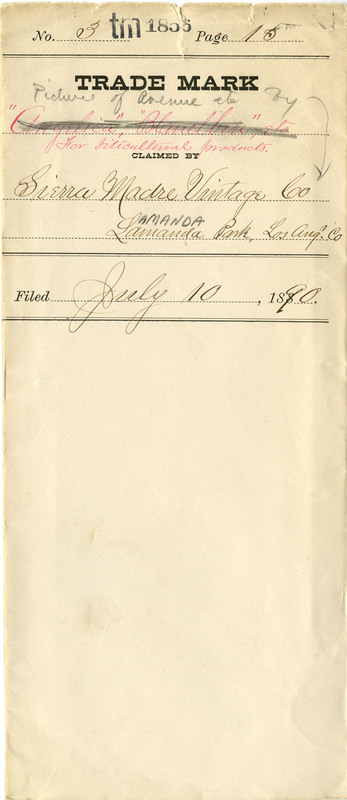 No. 3 tm 1855 Page 15
TRADE MARK
Picture of Avenue etc by
"Angelica", " " etc
For Viticultural products.
CLAIMED BY
Sierra Madre Vintage Co
AMANDA
Lamanda Park, Los Ang. Co
Filed July 10, 1890.